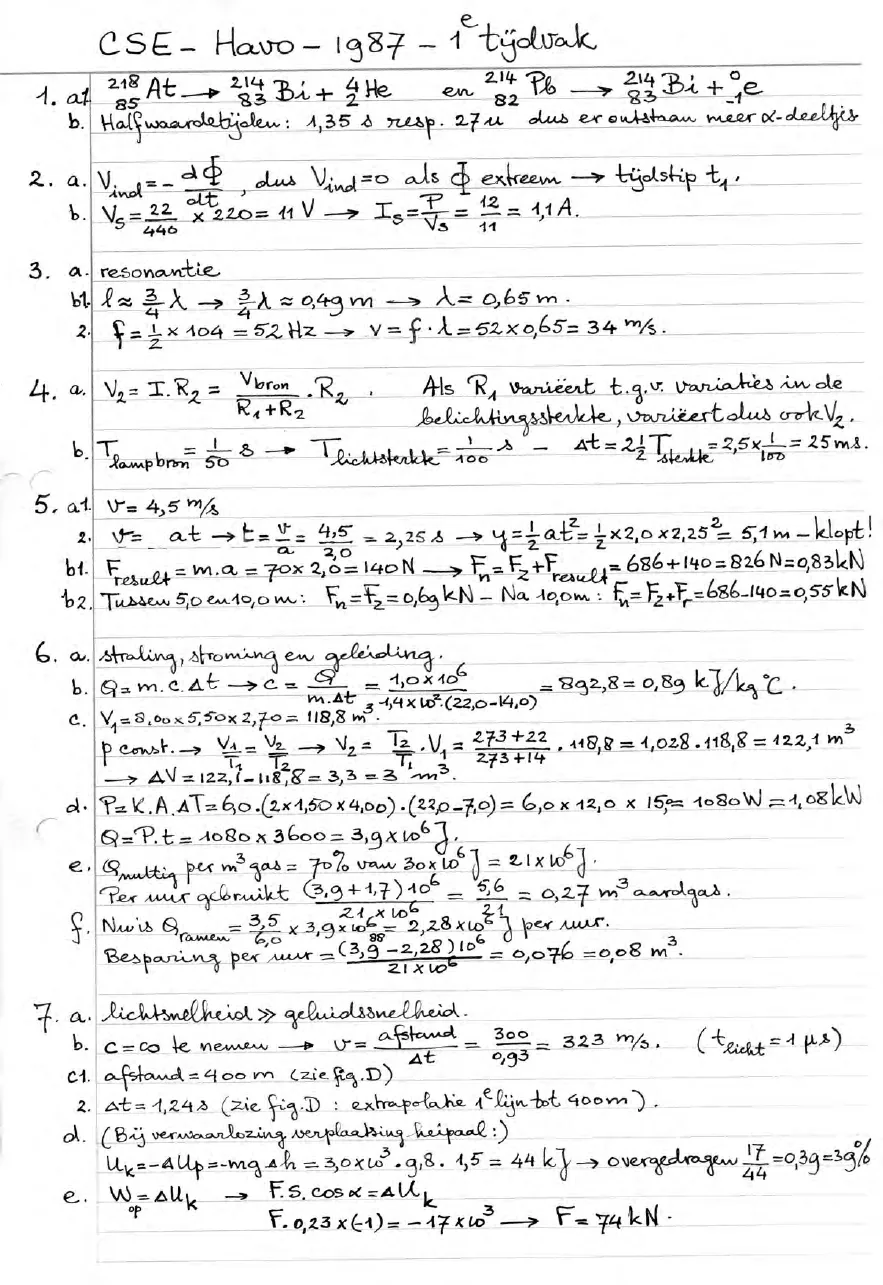 CSE - Havo - 1987 - 1e tijdvak
1. a1 ²¹⁸₈₅At → ²¹⁴₈₃Bi + ⁴₂He en ²¹⁴₈₂Pb → ²¹⁴₈₃Bi + ⁰₋₁e
b. Halfwaardetijden: 1,35 s resp. 27 u dus er ontstaan meer α-deeltjes
2. a. V_ind = - dΦ/dt, dus V_ind = 0 als Φ extreem → tijdstip t₁.
b. V_s = 22/440 × 220 = 11 V → I_s = P/V_s = 12/11 = 1,1 A.
3. a. resonantie
b1. l ≈ 3/4 λ → 3/4 λ ≈ 0,49 m → λ = 0,65 m.
2. f = 1/2 × 104 = 52 Hz → v = f · λ = 52 × 0,65 = 34 m/s.
4. a. V₂ = I.R₂ = V_bron/(R₁+R₂) . R₂ . Als R₁ varieert t.g.v. variaties in de
belichtingssterkte, varieert dus ook V₂.
b. T_lampbron = 1/50 s → T_lichtsterkte = 1/100 s - Δt = 2½ T_sterkte = 2,5 × 1/100 = 25 ms.
5. a1. v = 4,5 m/s
2. v = at → t = v/a = 4,5/2,0 = 2,25 s → y = ½ at² = ½ × 2,0 × 2,25² = 5,1 m - klopt!
b1. F_result = m.a = 70 × 2,0 = 140 N → F_n = F_z + F_result = 686 + 140 = 826 N = 0,83 kN
b2. Tussen 5,0 en 10,0 m: F_n = F_z = 0,69 kN - Na 10,0 m: F_n = F_z + F_r = 686 - 140 = 0,55 kN
6. a. straling, stroming en geleiding.
b. Q = m.c.Δt → c = Q/(m.Δt) = 1,0 × 10⁶/(1,4 × 10² · (22,0 - 14,0)) = 892,8 = 0,89 kJ/kg °C.
c. V₁ = 8,00 × 5,50 × 2,70 = 118,8 m³.
p const. → V₁/T₁ = V₂/T₂ → V₂ = T₂/T₁ . V₁ = (273+22)/(273+14) . 118,8 = 1,028 . 118,8 = 122,1 m³
→ ΔV = 122,1 - 118,8 = 3,3 = 3 m³.
d. P = K.A.ΔT = 6,0 . (2 × 1,50 × 4,00) . (22,0 - 7,0) = 6,0 × 12,0 × 15,0 = 1080 W = 1,08 kW
Q = P.t = 1080 × 3600 = 3,9 × 10⁶ J.
e. Q_nuttig per m³ gas = 70% van 30 × 10⁶ J = 21 × 10⁶ J.
Per uur gebruikt (3,9 + 1,7) 10⁶/(21 × 10⁶) = 5,6/21 = 0,27 m³ aardgas.
f. Nu is Q_ramen = 3,5/6,0 × 3,9 × 10⁶ = 2,28 × 10⁶ J per uur.
Besparing per uur = (3,88 - 2,28) 10⁶/(21 × 10⁶) = 0,076 = 0,08 m³.
7. a. lichtsnelheid >> geluidssnelheid.
b. c = ∞ te nemen → v = afstand/Δt = 300/0,93 = 323 m/s. (t_licht = 1 μs)
c1. afstand = 400 m (zie fig. D)
2. Δt = 1,24 s (zie fig. D : extrapolatie 1e lijn tot 400 m).
d. (Bij verwaarlozing verplaatsing heipaal:)
U_k = -ΔU_p = -mgΔh = 3,0 × 10³ . 9,8 . 1,5 = 44 kJ → overgedragen 17/44 = 0,39 = 39%
e. W_op = ΔU_k → F.s.cos α = ΔU_k
F . 0,23 × (-1) = - 17 × 10³ → F = 74 kN.